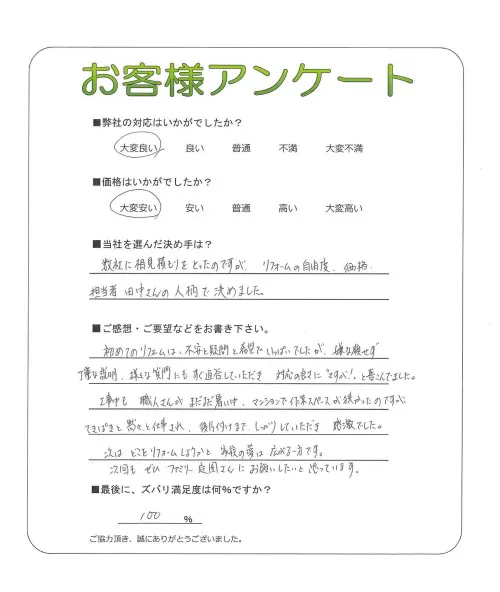 お客様アンケート
■弊社の対応はいかがでしたか？
大変良い 良い 普通 不満 大変不満
■価格はいかがでしたか？
大変安い 安い 普通 高い 大変高い
■当社を選んだ決め手は？
数社に相見積もりをとったのですが、リフォームの自由度、価格、
担当者 田中さんの人柄で決めました。
■ご感想・ご要望などをお書き下さい。
初めてのリフォームは、不安と疑問と希望でいっぱいでしたが、嫌な顔せず
丁寧な説明、様々な質問にもすぐ返答していただき 対応の良さに"さすが！"と喜んでました。
工事中も 職人さんが まだまだ暑い中、マンションで作業スペースが狭かったのですが
てきぱきと黙々と仕事され、後片付けまでしっかりしていただき 感激でした。
次は どこをリフォームしようかと 家族の夢は広がる一方です。
次回も ぜひ ファミリー庭園さんにお願いしたいと思っています。
■最後に、ズバリ満足度は何％ですか？
100 ％
ご協力頂き、誠にありがとうございました。